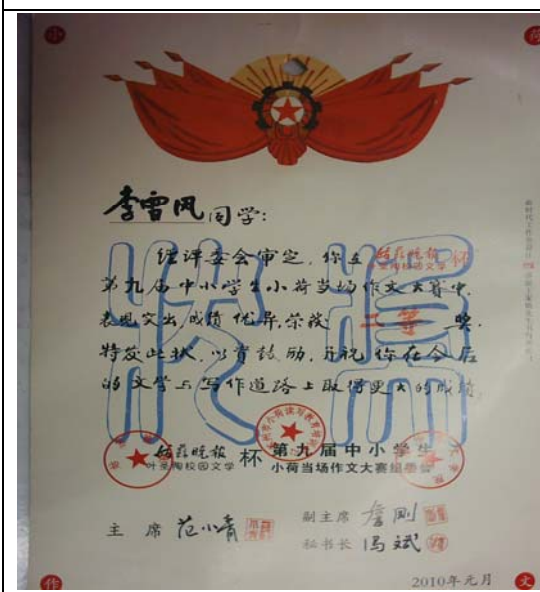 小 荷
李雪风同学:
经评委会审定,你在 姑苏晚报 叶圣陶校园文学 杯
第九届中小学生小荷当场作文大赛中,
表现突出,成绩优异,荣获 二等 奖.
特发此状,以资鼓励,并祝你在今后
的文学与写作道路上取得更大的成绩.
奖状
姑苏晚报 叶圣陶校园文学 杯 第九届中小学生
小荷当场作文大赛组委会
主 席 范小青 副主席 詹刚
秘书长 冯斌
2010年元月
作 文